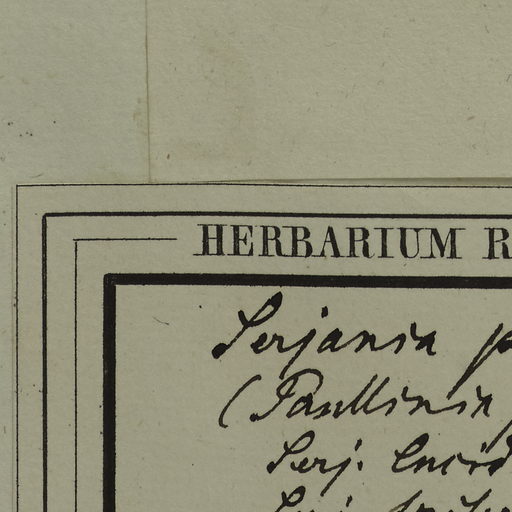 HERBARIUM R
Serjania p
(Paullinia
Serj. lucid